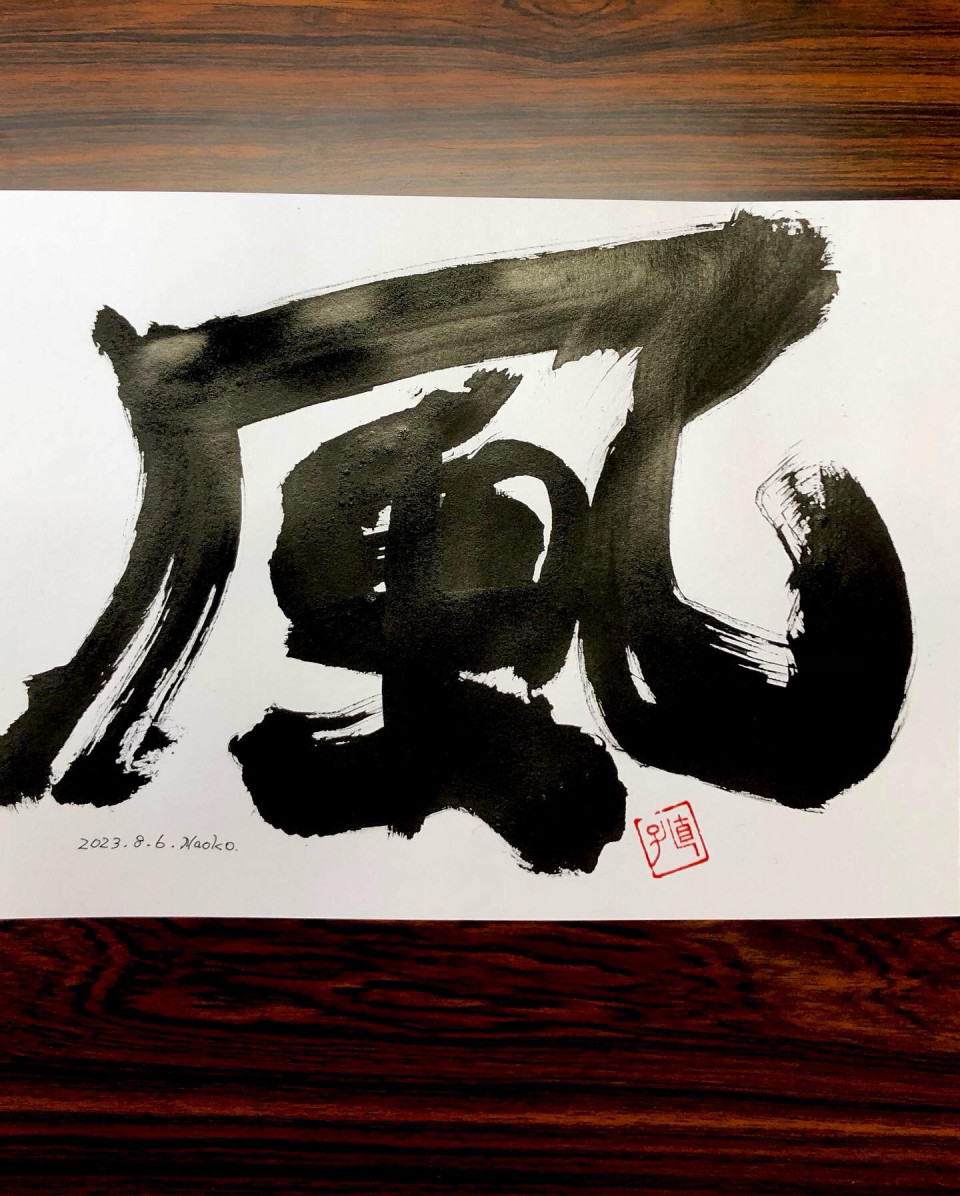 風
2023.8.6.Naoko.
直子